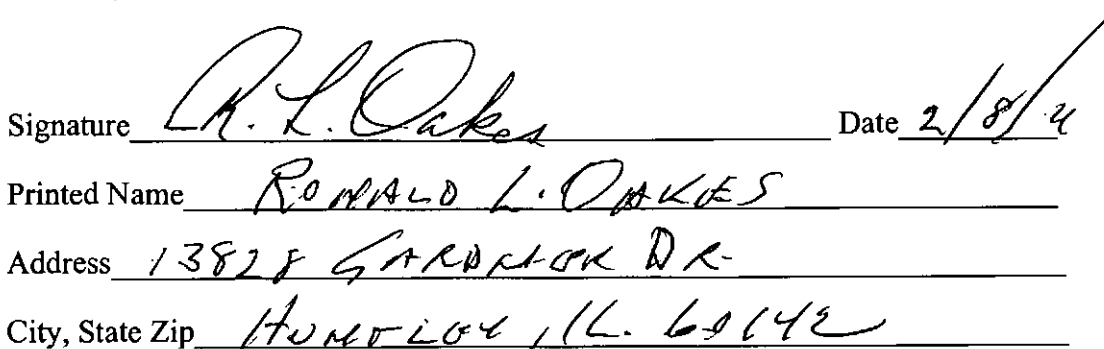 Signature R. L. Oakes Date 2/8/
Printed Name RONALD L. OAKES
Address 13828 GARDNER DR.
City, State Zip HUNTLEY, IL. 60142